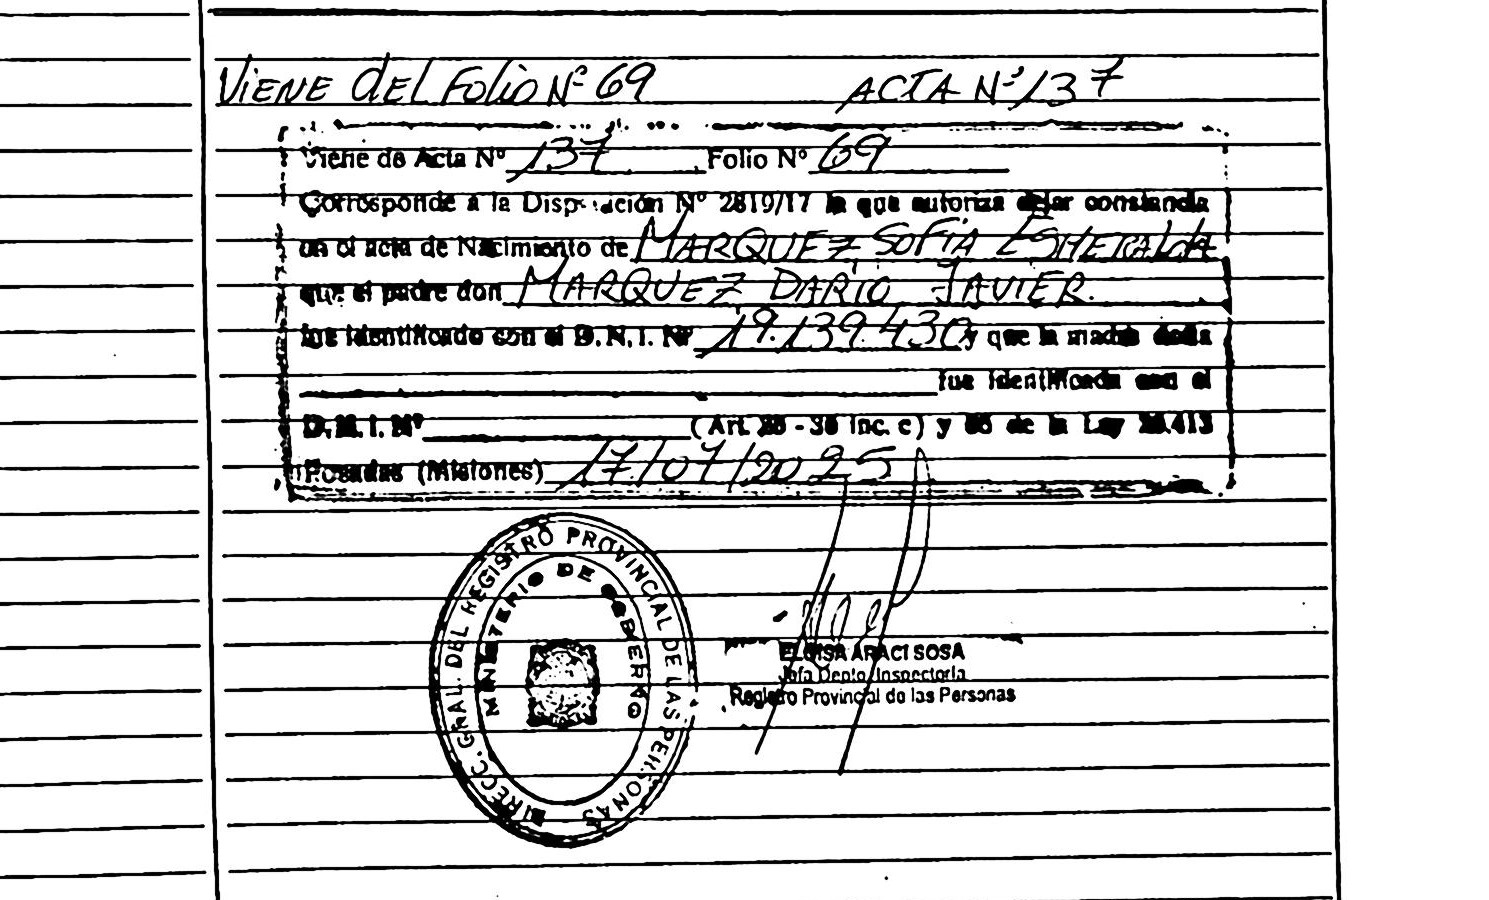 VIENE DEL FOLIO Nº 69 ACTA Nº 137
Viene de Acta Nº 137 Folio Nº 69
Corresponde a la Disposición Nº 2819/17 la que autoriza dejar constancia
en el acta de Nacimiento de MARQUEZ SOFIA ESMERALDA
que el padre don MARQUEZ DARIO JAVIER.
fue identificado con el D.N.I. Nº 19.139.430 y que la madre doña
fue identificada con el
D.N.I. Nº (Art. - 36 inc. c) y de la Ley 26.413
Posadas (Misiones) 17/07/2025
DIRECC. GRAL. DEL REGISTRO PROVINCIAL DE LAS PERSONAS
MINISTERIO DE GOBIERNO
ELOISA ARACI SOSA
Jefa Depto. Inspectoría
Registro Provincial de las Personas